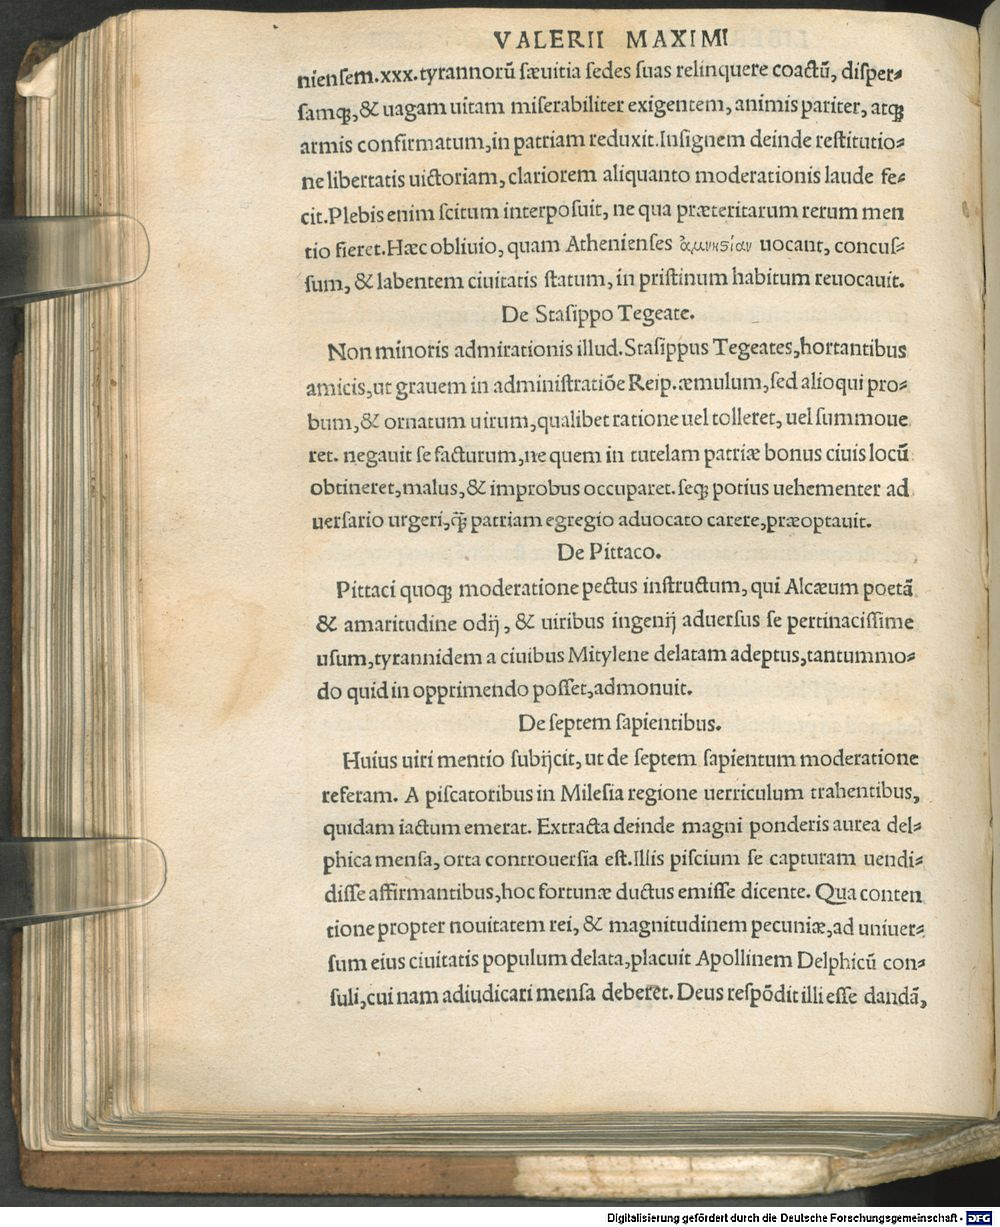 VALERII MAXIMI
niensem.xxx.tyrannorū sæuitia sedes suas relinquere coactū, disper⸗
samq;, & uagam uitam miserabiliter exigentem, animis pariter, atq;
armis confirmatum, in patriam reduxit. Insignem deinde restitutio⸗
ne libertatis uictoriam, clariorem aliquanto moderationis laude fe⸗
cit. Plebis enim scitum interposuit, ne qua præteritarum rerum men
tio fieret. Hæc obliuio, quam Athenienses ἀμνηςίαν uocant, concus⸗
sum, & labentem ciuitatis statum, in pristinum habitum reuocauit.
De Stasippo Tegeate.
Non minoris admirationis illud. Stasippus Tegeates, hortantibus
amicis, ut grauem in administratiōe Reip. æmulum, sed alioqui pro⸗
bum, & ornatum uirum, qualibet ratione uel tolleret, uel summoue
ret. negauit se facturum, ne quem in tutelam patriæ bonus ciuis locū
obtineret, malus, & improbus occuparet. seq; potius uehementer ad
uersario urgeri, q̄̃ patriam egregio aduocato carere, præoptauit.
De Pittaco.
Pittaci quoq; moderatione pectus instructum, qui Alcæum poetā
& amaritudine odij, & uiribus ingenij aduersus se pertinacissime
usum, tyrannidem a ciuibus Mitylene delatam adeptus, tantummo⸗
do quid in opprimendo posset, admonuit.
De septem sapientibus.
Huius uiri mentio subijcit, ut de septem sapientum moderatione
referam. A piscatoribus in Milesia regione uerriculum trahentibus,
quidam iactum emerat. Extracta deinde magni ponderis aurea del⸗
phica mensa, orta controuersia est. Illis piscium se capturam uendi⸗
disse affirmantibus, hoc fortunæ ductus emisse dicente. Qua conten
tione propter nouitatem rei, & magnitudinem pecuniæ, ad uniuer⸗
sum eius ciuitatis populum delata, placuit Apollinem Delphicū con⸗
suli, cui nam adiudicari mensa deberet. Deus respōdit illi esse dandā,
Digitalisierung gefördert durch die Deutsche Forschungsgemeinschaft - DFG